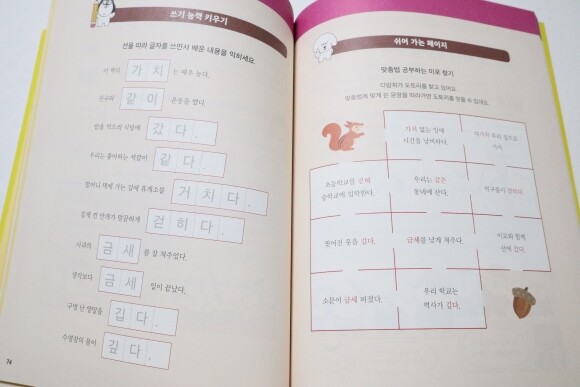 쓰기 능력 키우기
선을 따라 글자를 쓰면서 배운 내용을 익히세요.
이 책의 가치 는 매우 높다.
친구와 같이 운동을 했다.
밥을 먹으러 식당에 갔다.
우리는 좋아하는 색깔이 같다.
할머니 댁에 가는 길에 휴게소를 거치다.
짙게 낀 안개가 말끔하게 걷히다.
사과의 금세 를 잘 쳐주었다.
생각보다 금세 일이 끝났다.
구멍 난 양말을 깁다.
수영장의 물이 깊다.
74
쉬어 가는 페이지
맞춤법 공부하는 미로 찾기
다람쥐가 도토리를 찾고 있어요.
맞춤법에 맞게 쓴 문장을 따라가면 도토리를 찾을 수 있어요.
가치 없는 일에
시간을 낭비하다.
초등학교를 걷혀
중학교에 입학한다.
우리는 같은
동네에 산다.
찢어진 옷을 깁다.
금세를 낮게 쳐주다.
이모와 함께
산에 갔다.
소문이 금세 퍼졌다.
우리 학교는
역사가 깊다.